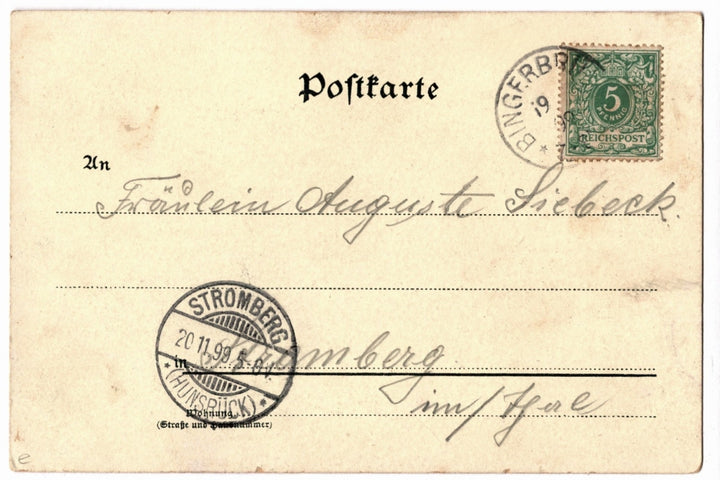 Postkarte
BINGERBR
19
99
5
PFENNIG
REICHSPOST
An
Fräulein Auguste Siebeck.
STROMBERG
20.11.99 5-6V.
* (HUNSRÜCK) *
in Stromberg
Wohnung
(Straße und Hausnummer)
im
e